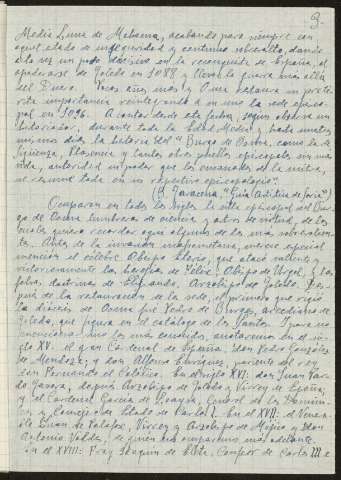 3.
Media Luna de Medina, acabando para siempre con
aquel estado de inseguridad y continuo sobresalto, dando
esta vez un paso decisivo en la reconquista de España, al
apoderarse de Toledo en 1088 y llevar la guerra más allá
del Duero. Pocos años más y Osma restaura su preté-
rita importancia reintegrando a su uno la sede episco-
pal en 1096. A contar desde esta fecha, según observa un
historiador, durante toda la Edad Media y hasta nuestros
mismos días la historia del "Burgo de Osma, como la de
Sigüenza, Plasencia y tantos otros pueblos episcopales sin más
vida, autoridad ni poder que los emanados de la mitra,
se resume toda en su respectivo episcopologio".
(B. Taracena "Guía Artística de Soria")
Ocuparon en todos los siglos la silla episcopal del Bur-
go de Osma lumbreras de ciencia y astros de santidad, de los
cuales quiero recordar aquí algunos de los más sobresalien-
tes. Antes de la invasión mahometana, merece especial
mención el célebre Obispo Eterio, que atacó valiente y
victoriosamente la herejía de Félix, Obispo de Urgel, y las
falsas doctrinas de Elipando, Arzobispo de Toledo. Des-
pués de la restauración de la sede, el primero que rigió
la diócesis de Osma fué Pedro de Burges, arcediano de
Toledo, que figura en el catálogo de los Santos. Y para no
mencionar sino los más conocidos, anotaremos en el si-
glo XV: el gran Cardenal de España, don Pedro González
de Mendoza; y don Alfonso Enríquez, pariente del rey
don Fernando el Católico. En el siglo XVI: don Juan Par-
do Tavera, después Arzobispo de Toledo y Virrey de España;
y el Cardenal García de Loaysa, General de los Domini-
cos y Consejero de Estado de Carlos I. En el XVII: el Venera-
ble Juan de Palafox, Virrey y Arzobispo de Méjico y don
Antonio Valdés, de quien nos ocuparemos más adelante.
En el XVIII: Fray Joaquín de Eleta, Confesor de Carlos III e